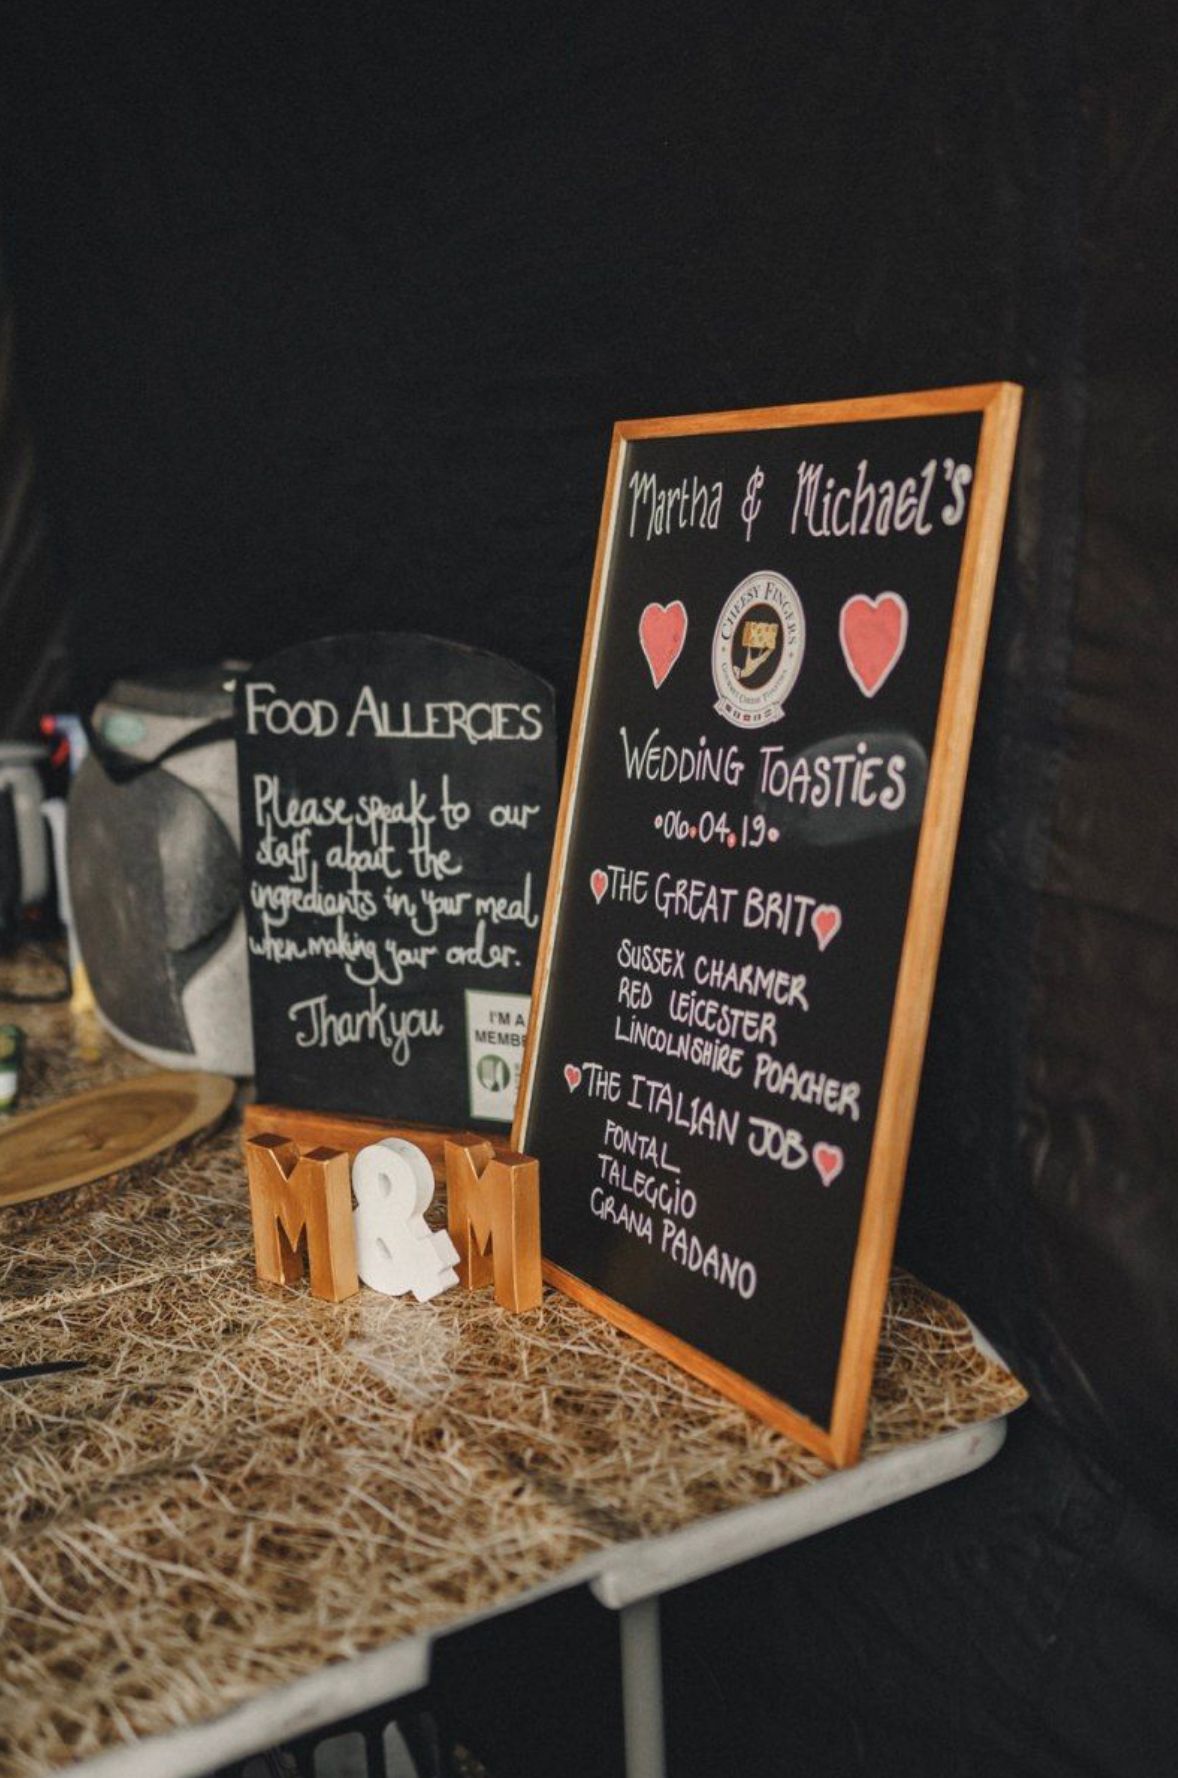 FOOD ALLERGIES
Please speak to our
staff, about the
ingredients in your meal
when making your order.
Thankyou
I'M A
M&M
Martha & Michael's
CHEESY FINGERS
WEDDING TOASTIES
•06.04.19•
THE GREAT BRIT
SUSSEX CHARMER
RED LEICESTER
LINCOLNSHIRE POACHER
THE ITALIAN JOB
FONTAL
TALEGGIO
GRANA PADANO